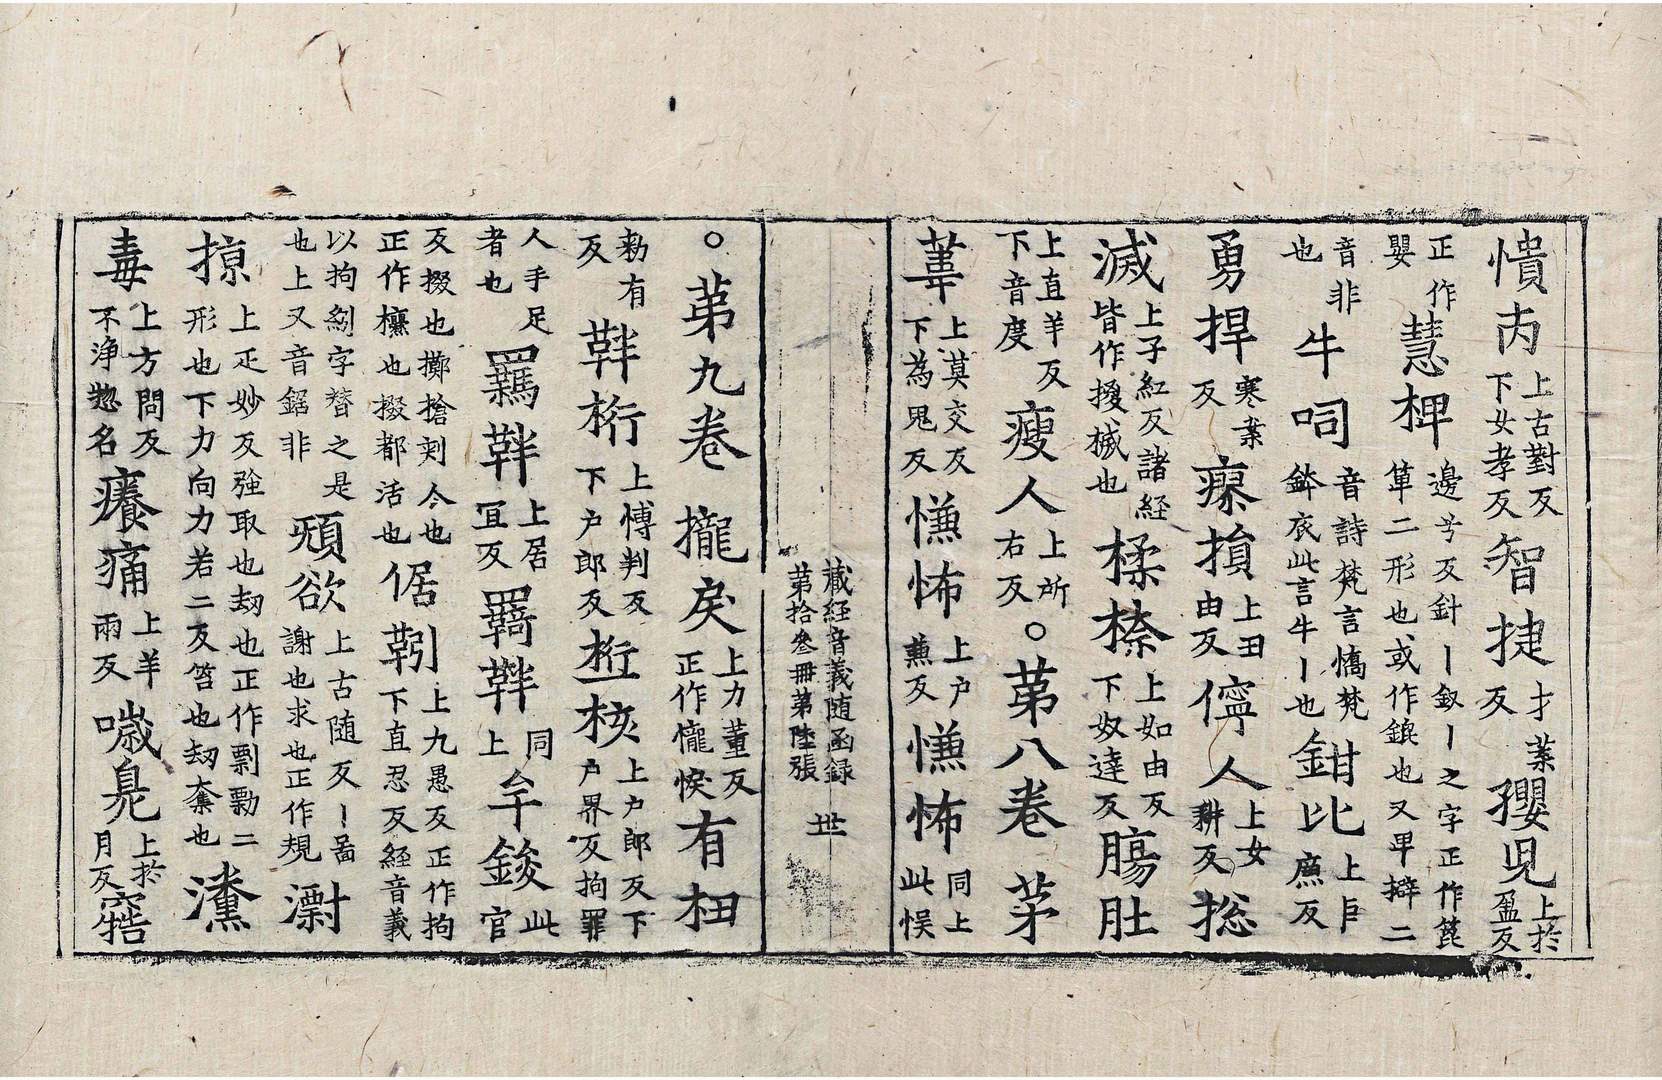 憒 上古對反下女孝反智捷才葉反㜸兒上於盈反
正作嬰慧椑邊兮反針丨釵丨之字正作篦箄二形也或作鎞也又卑擗二
音非也牛呞音詩梵言憍梵鉢底此言牛丨也鉗比上巨廉反
勇捍寒案反瘝損上丑由反儜人上女耕反揔
滅上子紅反諸經皆作擾樴也揉㮏上如由反下奴達反腸肚
上直羊反下音度瘦人上所右反○第八卷茅
葦上莫交反下為鬼反慊怖上户兼反慊怖同上此悮
藏經音義随函録
第拾叁冊第陸張 世
○第九卷攏戾上力董反正作儱悷有杻
勑有反靽桁上博判反下户郎反桁械上户郎反下户界反拘罪
人手足者也羈靽上居冝反羇靽同上牟鋑此官
反掇也擲搶刾今也正作欑也掇都活也倨靷上九愚反正作拘下直忍反經音義
以拘紖字替之是也上又音鋸非 欲上古随反丨啚謝也求也正作規
掠上疋妙反強取也刧也正作剽勡二形也下力向力若二反笞也刧奪也瀵
毒上方問反不浄惣名癢痛上羊兩反噦臭上於月反